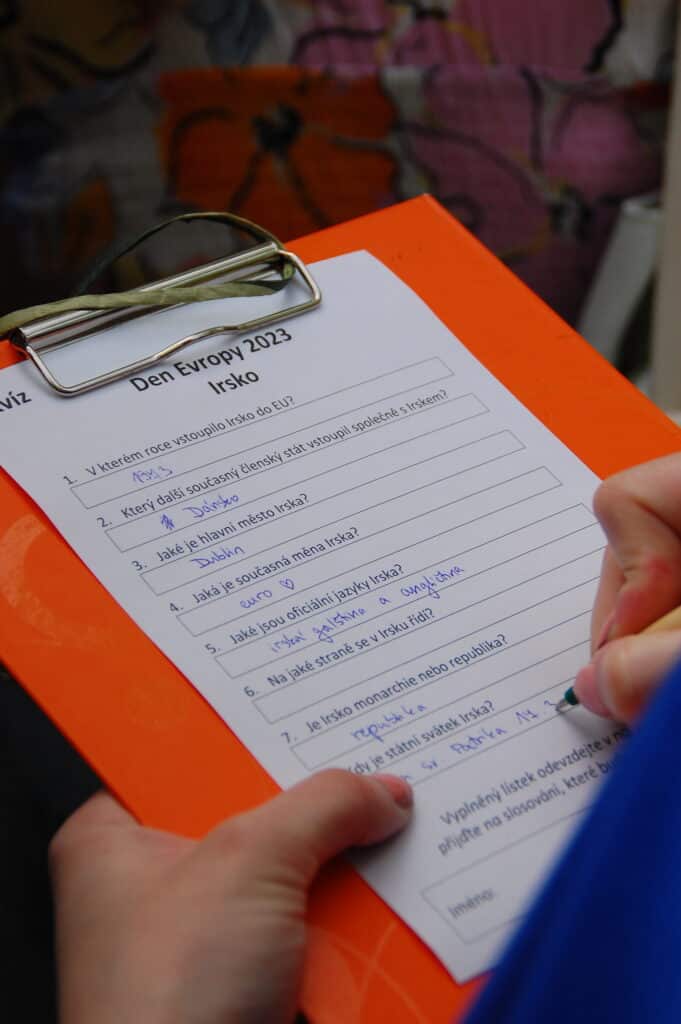 Den Evropy 2023
Irsko
1. V kterém roce vstoupilo Irsko do EU?
1973
2. Který další současný členský stát vstoupil společně s Irskem?
Dánsko
3. Jaké je hlavní město Irska?
Dublin
4. Jaká je současná měna Irska?
euro ♡
5. Jaké jsou oficiální jazyky Irska?
irská galština a angličtina
6. Na jaké straně se v Irsku řídí?
7. Je Irsko monarchie nebo republika?
republika
dy je státní svátek Irska?
sv. Patrika 17.3
Vyplněný lístek odevzdejte v
přijďte na slosování, které bu
Jméno: